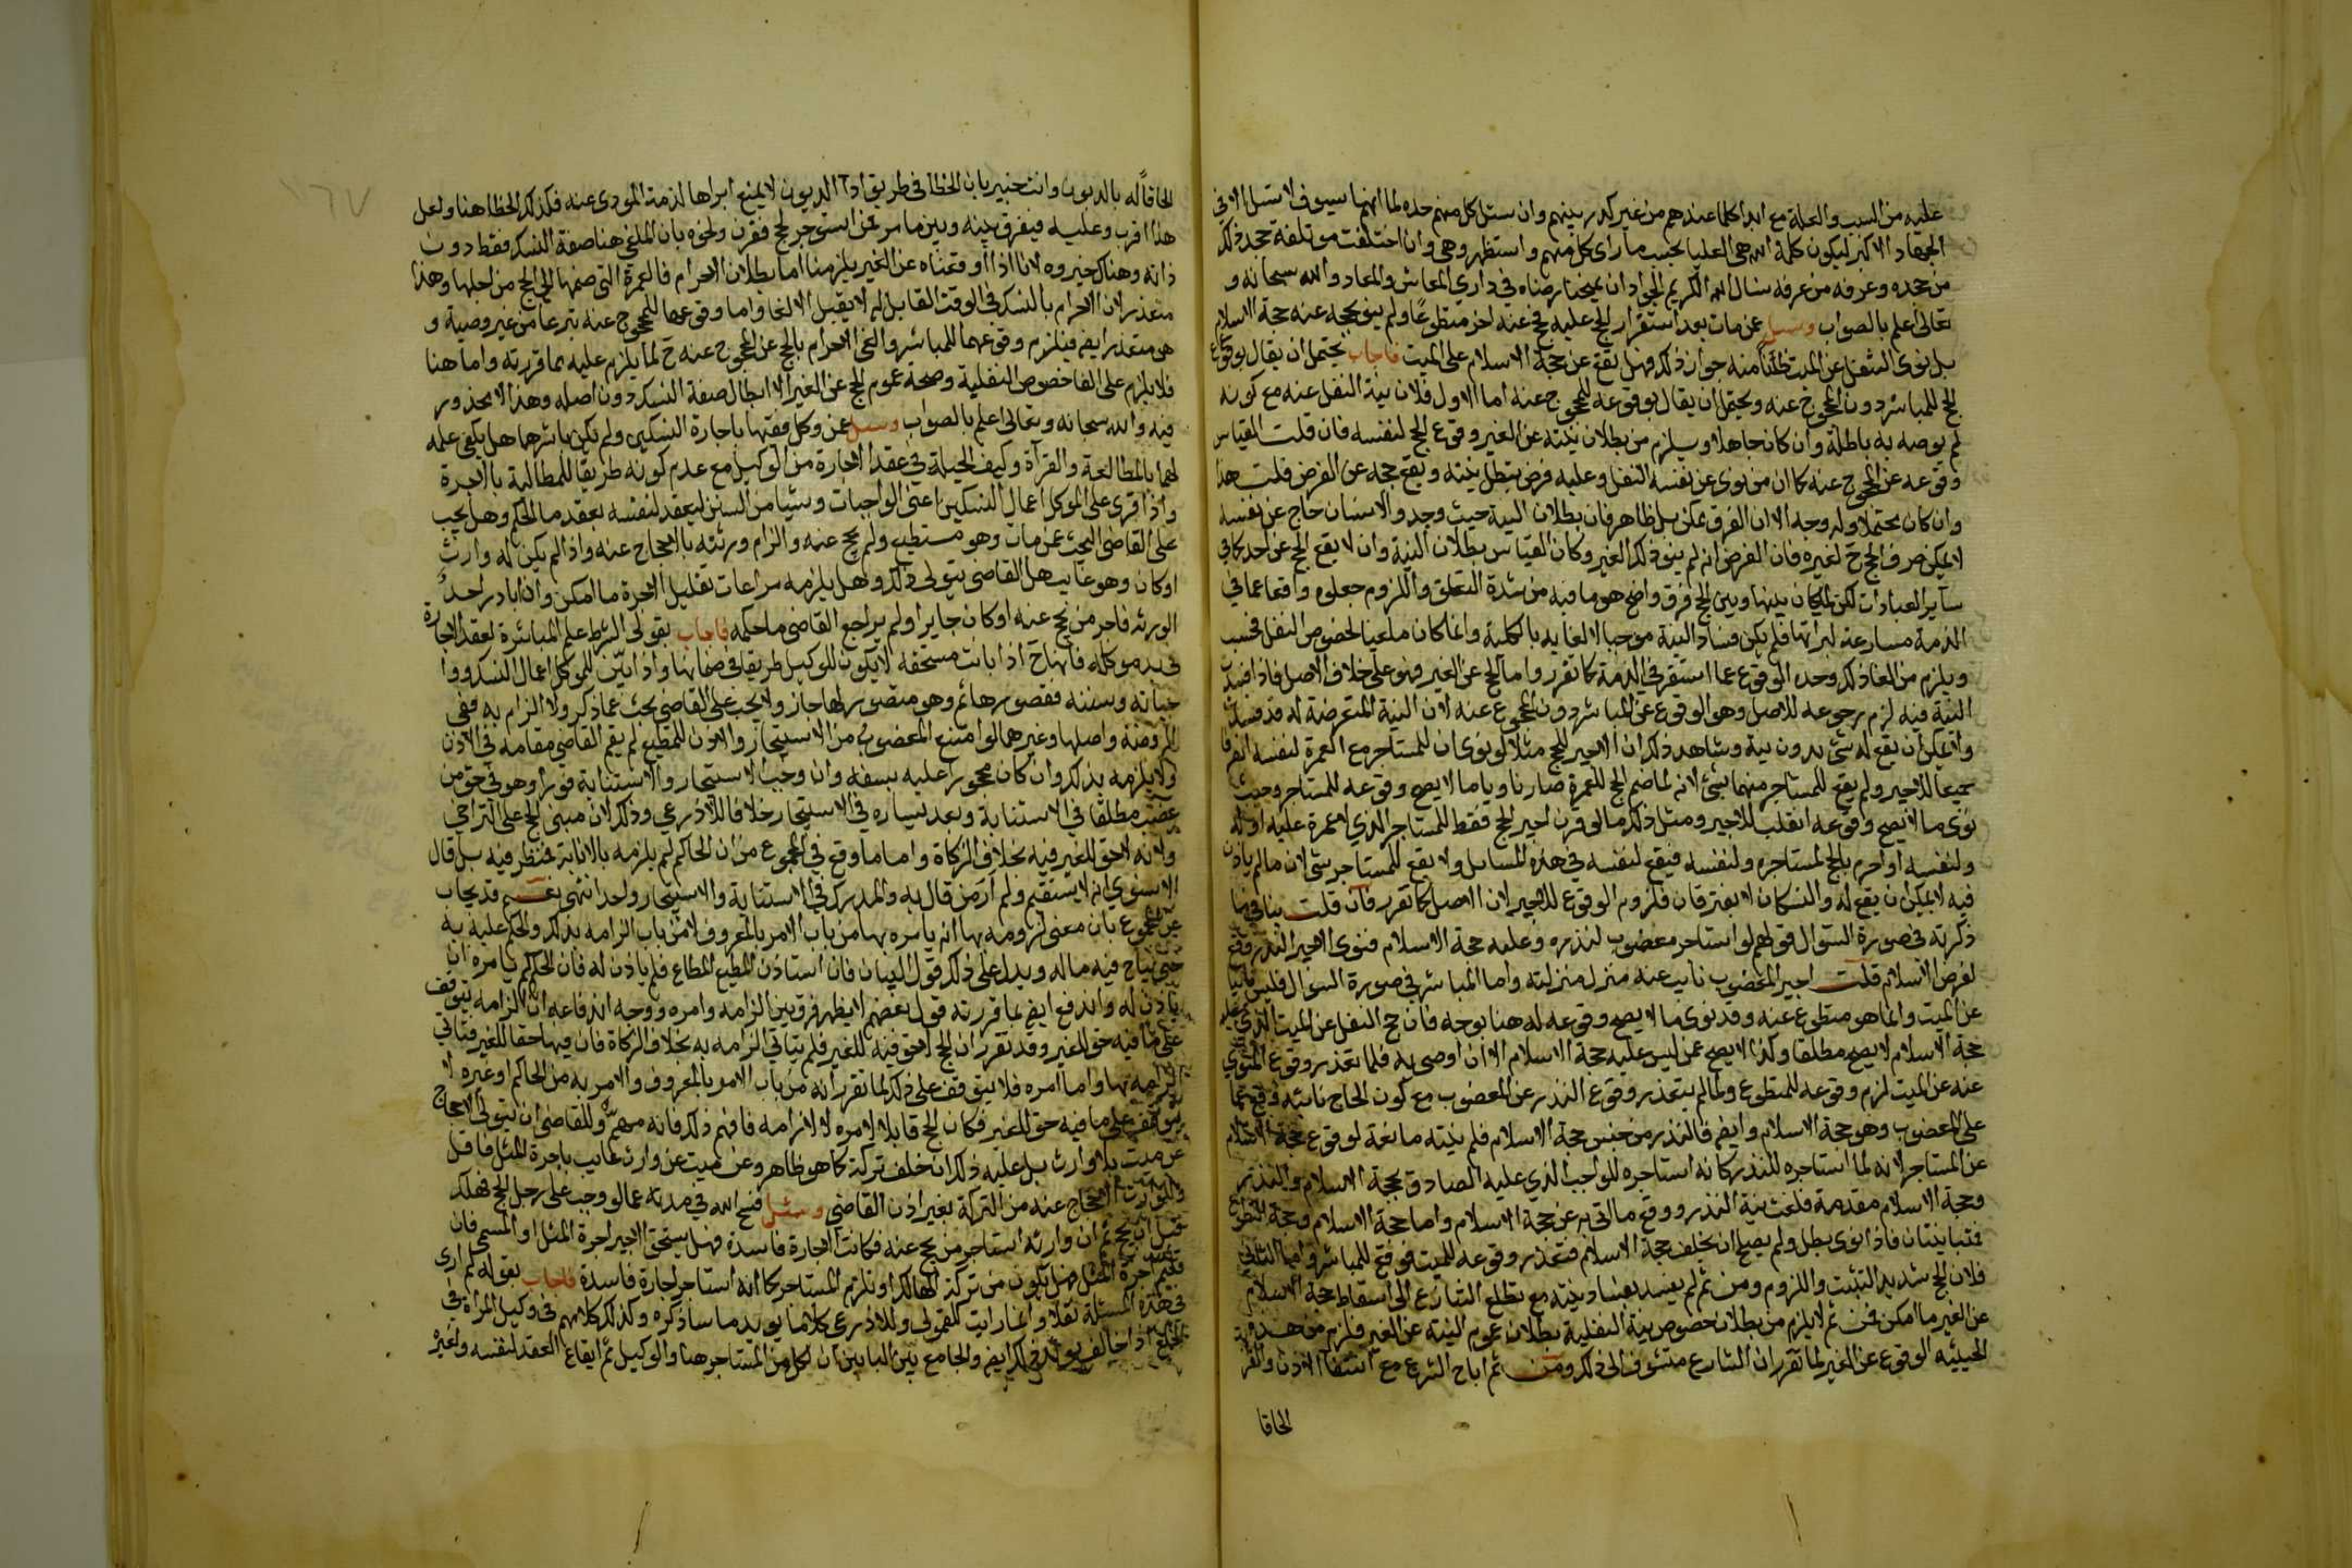 عليه من السبب والعلة مع ابدا كلما عندهم من غير كدر بينهم وان سئل كل منهم حده لما انهما سيوف لا تسل الا في
الجهاد الاكبر ليكون كلمة الله هي العليا بحسب ما راى كل منهم واستظهر وهي وان اختلفت موتلفة تجد ذلك
من حمده وعرفه من عرفه نسال الله الكريم الجواد ان يمنحنا رضاه في داري المعاش والمعاد والله سبحانه و
تعالى اعلم بالصواب وسئل عمن مات بعد استقرار الحج عليه فحج عنه اخر متطوعا ولم ينو بحجه عنه حجة الاسلام
بل نوى التنفل عن الميت ظانا منه جواز ذلك فهل تقع عن حجة الاسلام على الميت فاجاب يحتمل ان يقال بوقوع
الحج للمباشر دون المحجوج عنه ويحتمل ان يقال بوقوعه للمحجوج عنه اما الاول فلان نية النفل عنه مع كونه
لم يوصه به باطلة وان كان جاهلا ويلزم من بطلان نيته عن الغير وقوع الحج لنفسه فان قلت القياس
وقوعه عن المحجوج عنه كما ان من نوى عن نفسه النفل وعليه فرض يبطل نيته ويقع حجه عن الفرض قلت هذا
وان كان محتملا وله وجه الا ان الفرق ممكن بل ظاهر فان بطلان النية حيث وجد والانسان حاج عن نفسه
لا يمكن صرف الحج ح لغيره فان الفرض انه لم ينو ذلك الغير وكان القياس بطلان النية وان لا يقع الحج عن احد كما في
ساير العبادات لكن لما كان بينها وبين الحج فرق واضح هو ما فيه من شدة التعلق واللزوم جعلوه واقعا عما في
الذمة مسارعة لبراتها فلم يكن فساد النية موجبا لالغايه بالكلية وانما كان ملغيا لخصوص النفل فحسب
ويلزم من الغا ذلك وحده الوقوع عما استقر في الذمة كما تقرر واما الحج عن الغير فهو على خلاف الاصل فاذا فسدت
النية فيه لزم رجوعه للاصل وهو الوقوع عن المباشر دون المحجوج عنه لان النية المتعرضة له قد فسدت
ولا يمكن ان يقع له شئ بدون نية وشاهد ذلك ان الاجير للحج مثلا لو نوى ان للمستاجر مع العمرة لنفسه انصرفا
جميعا للاجير ولم يقع للمستاجر منهما شئ لانه لما ضم الحج للعمرة صار ناويا ما لا يصح وقوعه للمستاجر وحيث
نوى ما لا يصح وقوعه انقلب للاجير ومثل ذلك ما لو قرن اجير الحج فقط للمستاجر الذي لا عمرة عليه او له
ولنفسه او احرم بالحج لمستاجره ولنفسه فيقع لنفسه في هذه المسايل ولا يقع للمستاجر شئ لان ما لم ياذن
فيه لا يمكن ان يقع له والنسكان لا يفترقان فلزوم الوقوع للاجير لان الاصل كما تقرر فان قلت ينافي ما
ذكرته في صورة السوال قولهم لو استاجر معضوب لنذره وعليه حجة الاسلام فنوى الاجير النذر وقع
لفرض الاسلام قلت اجير المعضوب نايب عنه منزل منزلته واما المباشر في صورة السوال فليس نايبا
عن الميت وانما هو متطوع عنه وقد نوى ما لا يصح وقوعه له هنا بوجه فان حج النفل عن الميت الذي عليه
حجة الاسلام لا يصح مطلقا وكذا لا يصح عمن ليس عليه حجة الاسلام الا ان اوصى به فلما تعذر وقوع المنوي
عنه عن الميت لزم وقوعه للمتطوع ولما لم يتعذر وقوع النذر عن المعضوب مع كون الحاج نائبه وقع عما
على المعضوب وهو حجة الاسلام وايضا فالنذر من جنس حجة الاسلام فلم نيته مانعة لوقوع حجة الاسلام
عن المستاجر لانه لما استاجره للنذر كانه استاجره للواجب الذي عليه الصادق بحجة الاسلام وبالنذر
وحجة الاسلام مقدمة فلغت نية النذر ووقع ما اتى به عن حجة الاسلام واما حجة الاسلام وحجة التطوع
فمتباينتان فاذا نوى بطل ولم يصلح ان يخلف حجة الاسلام فتعذر وقوعه للميت فوقع للمباشر واما الثاني
فلان الحج شديد التثبت واللزوم ومن ثم لم يفسد بفساد نيته مع تطلع الشارع الى اسقاط حجة الاسلام
عن الغير ما امكن فمن ثم لا يلزم من بطلان خصوص نية النفلية بطلان عموم النية عن الغير فلزم من هذه
الحيثية الوقوع عن الغير لما تقرر ان الشارع متشوف الى ذلك ومن ثم اباح الشرع مع انتفا الاذن والقر
الحاقا
الحاقا له بالديون وانت خبير بان الخطا في طريق ادا الديون لا يمنع ابراها لذمة المودى عنه فكذلك الخطا هنا ولعل
هذا اقرب وعليه فيفرق بينه وبين ما مر عمن استوجر لحج فقرن ونحوه بان الملغي هنا صفة النسك فقط دون
ذاته وهناك خيروه لانا اذا اوقعناه عن الغير يلزمنا اما بطلان الاحرام فالعمرة التي ضمها الى الحج من اجلها وهذا
متعذر لان الاحرام بالنسك في الوقت القابل له لا يقبل الالغا واما وقوعها للمحجوج عنه تبرعا من غير وصية و
هو متعذر ايضا فيلزم وقوعهما للمباشر والغي الاحرام بالحج عن المحجوج عنه ح لما يلزم عليه مما قررته واما هنا
فلا يلزم على الغا خصوص النفلية وصحة عموم الحج عن الغير الا ابطال صفة النسك دون اصله وهذا لا محذور
فيه والله سبحانه وتعالى اعلم بالصواب وسئل عمن وكل فقيها باجارة النسكين ولم يكن باشرهما هل يكفي علمه
لهما بالمطالعة والقراة وكيف الحيلة في عقد الاجارة من الوكيل مع عدم كونه طريقا للمطالبة بالاجرة
واذا قرى على الموكل اعمال النسكين اعني الواجبات وشيا من السنن ليعقد لنفسه بعقد ما الحكم وهل يجب
على القاضي البحث عمن مات وهو مستطيع ولم يحج عنه والزام ورثته بالاحجاج عنه واذا لم يكن له وارث
او كان وهو غايب هل القاضي يتولى ذلك وهل يلزمه مراعات تقليل الاجرة ما امكن واذا بادر احد
الورثه فاجر من يحج عنه او كان جايرا ولم يراجع القاضي ما حكمه فاجاب بقوله الشرط علم المباشرة لعقد الاجارة
في يد موكله فانها ح اذا بانت مستحقه لا يكون للوكيل طريقا في ضمانها واذا بين للموكل اعمال النسك ووا
جباته وسننه فقصورها ثم وهو متصور لها جاز ولا يجب على القاضي بحث عما ذكر ولا الزام به ففي
الروضة واصلها وغيرهما لو امتنع المعضوب من الاستيجار والاذن للمطيع لم يقم القاضي مقامه في الاذن
ولا يلزمه بذلك وان كان محجورا عليه بسفه وان وجب الاستيجار والاستنابة فورا وهو في حق من
عضب مطلقا في الاستنابة وبعد يساره في الاستيجار خلافا للاذرعي وذلك لان مبنى الحج على التراخي
ولانه لا حق للغير فيه بخلاف الزكاة واما ما وقع في المجموع من ان الحاكم لم يلزمه بالانابة فنظر فيه بل قال
الاسنوي انه لا يستقيم ولم ار من قال به والمدرك في الاستنابة والاستيجار واحد انتهى نعم قد يجاب
عن المجموع بان معنى لزومه بها انه يامره بها من باب الامر بالمعروف لا من باب الزامه بذلك والحكم عليه به
حتى يباح فيه ماله ويدل على ذلك قول البيان فان استاذن المطيع المطاع فلم ياذن له فان الحاكم يامره ان
ياذن له واندفع ايضا بما قررته قول بعضهم لا يظهر فرق بين الزامه وامره ووجه اندفاعه ان الزامه يتوقف
على ما فيه حق للغير وقد تقرر ان الحج لا حق فيه للغير فلم يتاتى الزامه به بخلاف الزكاة فان فيها حقا للغير فتاتي
الزامه بها واما امره فلا يتوقف على ذلك لما تقرر انه من باب الامر بالمعروف والامر به من الحاكم او غيره لا
يتوقف على ما فيه حق للغير فكان الحج قابلا لامره لا لالزامه فافهم ذلك فانه مهم وللقاضي ان يتولى الاحجاج
عن ميت بلا وارث بل عليه ذلك ان خلف تركة كما هو ظاهر وعن ميت عن وارث غايب باجرة المثل فاقل
وللوارث الاحجاج عنه من التركة بغير اذن القاضي وسئل فسح الله في مدته عما لو وجب على رجل الحج فهلك
قبل ان يحج ثم ان وارثه استاجر من يحج عنه فكانت الاجارة فاسدة فهل يستحق الاجير اجرة المثل او المسمى فان
قلتم اجرة المثل فهل تكون من تركة الهالك او تلزم المستاجر كما انه استاجر اجارة فاسدة فاجاب بقوله لم ارى
في هذه المسئلة نقلا وانما رايت للقمولي وللاذرعي كلاما يويد ما ساذكره وكذلك كلامهم في وكيل المراة في
الخلع اذا خالف يويد ذلك ايضا والجامع بين البابين ان كل من المستاجر هنا والوكيل ثم ايقاع العقد لنفسه ولغيره